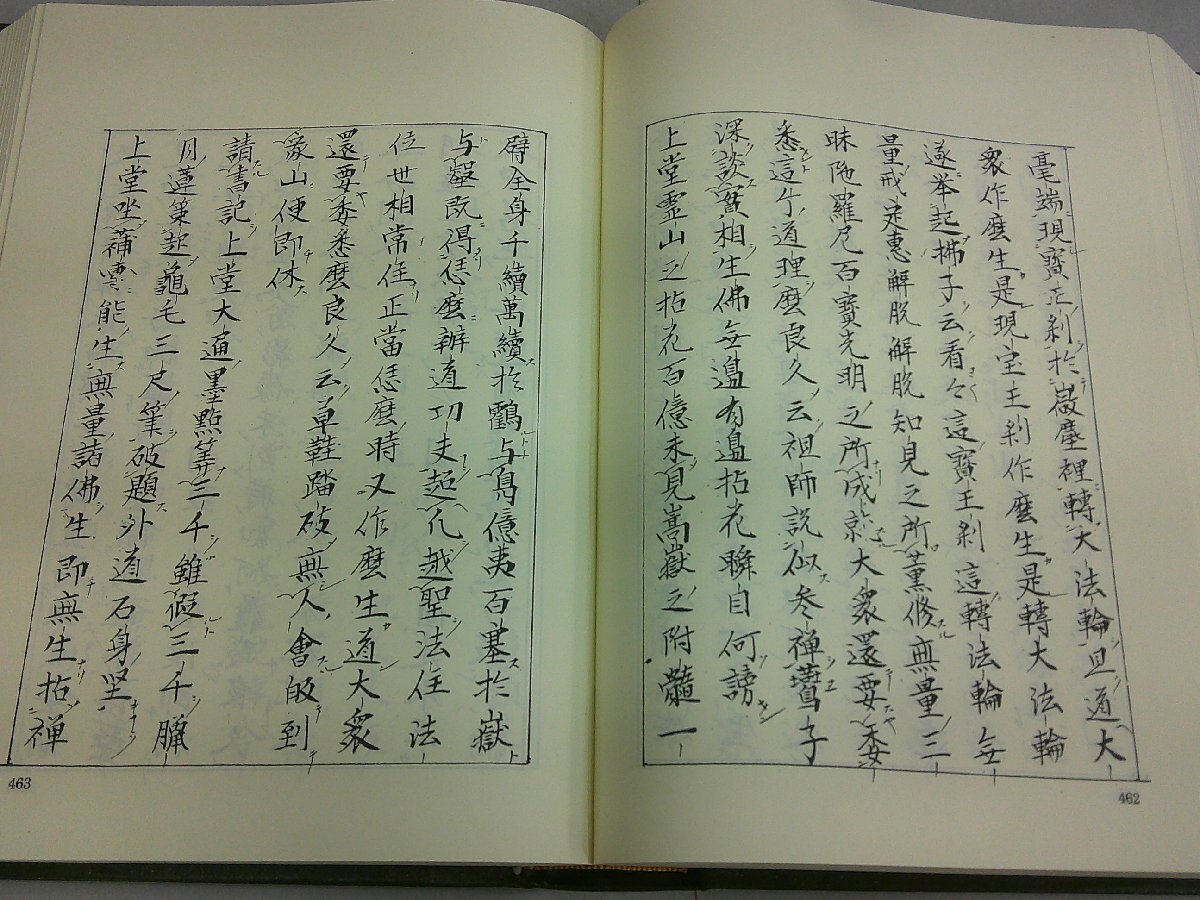 毫端現寶王刹於微塵裡轉大法輪且道大
衆作麼生是現宝王刹作麼生是轉大法輪
遂举起拂子云看々這寶王刹這轉法輪無
量戒定惠解脱解脱知見之所薫修無量三
昧陁羅尼百寳光明之所成就大衆還要委
悉這个道理麼良久云祖師説似参禅鶖子
深談實相生佛無邉有邉拈花瞬目何謗
上堂霊山之拈花百億未見嵩嶽之附髓一
臂全身千續萬續於鸖与鳬億夷百塞於嶽
与壑既得恁麼辦道功夫超凡越聖法住法
位世相常住正當恁麼時又作麼生道大衆
還要委悉麼良久云草鞋踏破無人會皈到
家山便即休
請書記上堂大通墨點筭三千雖假三千臘
月蓮策起龜毛三尺筆破題外道石身坚
上堂坐蒲雲能生無量諸佛生即無生拈禅
463
462